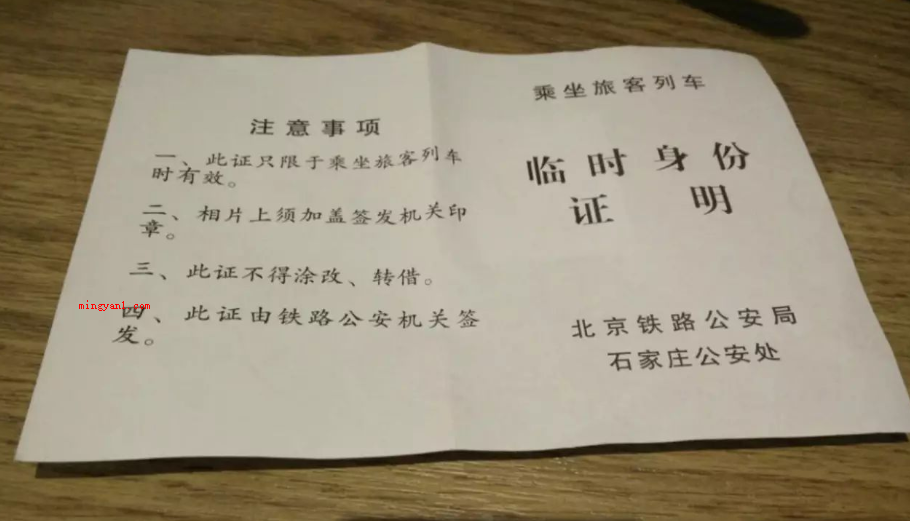 注意事项
一、此证只限于乘坐旅客列车
时有效。
二、相片上须加盖签发机关印
章。
三、此证不得涂改、转借。
四、此证由铁路公安机关签
发。
mingyan1.com
乘坐旅客列车
临时身份
证明
北京铁路公安局
石家庄公安处